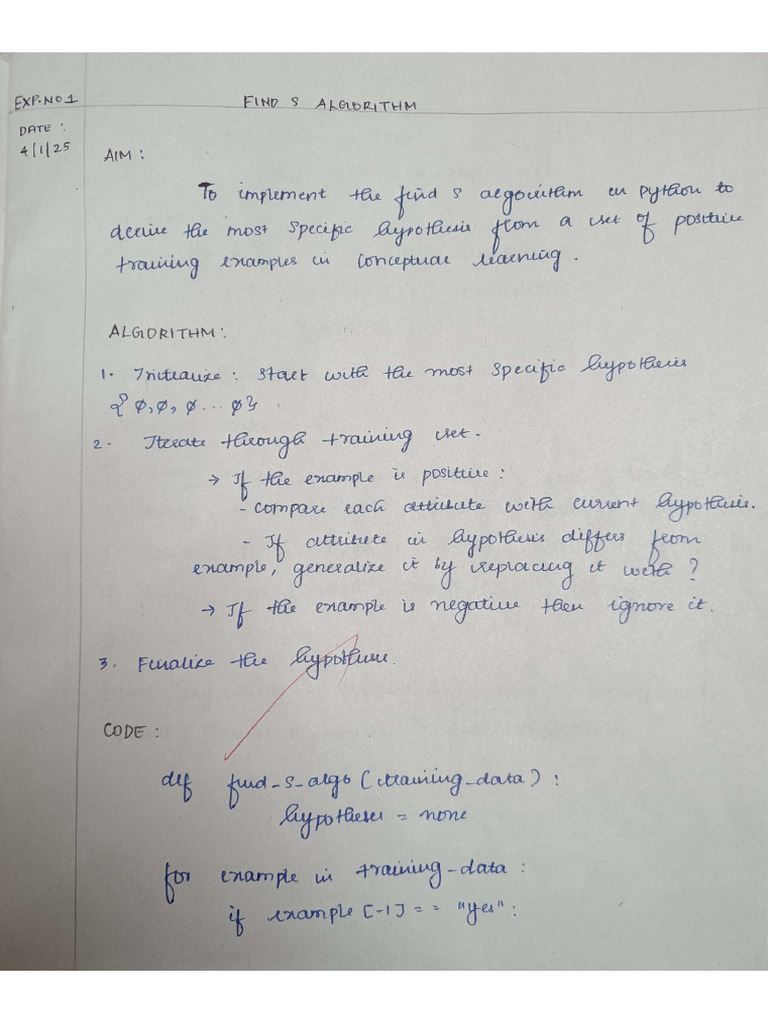 EXP.NO 1
FIND S ALGORITHM
DATE :
4/1/25
AIM :
To implement the find S algorithm in python to
derive the most specific hypothesis from a set of positive
training examples in conceptual learning.
ALGORITHM :
1. Initialize : Start with the most specific hypothesis
{ø, ø, ø ... ø}
2. Iterate through training set.
→ If the example is positive :
- compare each attribute with current hypothesis.
- If attribute in hypothesis differs from
example, generalize it by replacing it with ?
→ If the example is negative then ignore it.
3. Finalize the hypothesis.
CODE :
def find_S_algo (training_data) :
hypothesis = none
for example in training_data :
if example [-1] == "yes" :